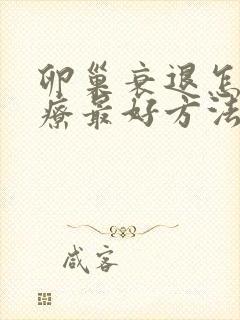 卵巢衰退怎
疗最好方法
咸客